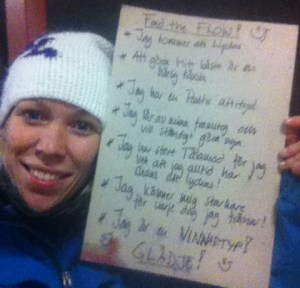 Find the FLOW!
* Jag kommer att lyckas
* Att göra mitt bästa är en
bärig
* Jag har en Positiv attityd
* Jag lär av mina misstag och
vill ständigt
* Jag har stort Tålamod för jag
vet att jag alltid har
chans att lyckas!
* Jag känner mig starkare
för varje dag jag tränar!
* Jag är en VINNARTYP!
GLÄDJE!